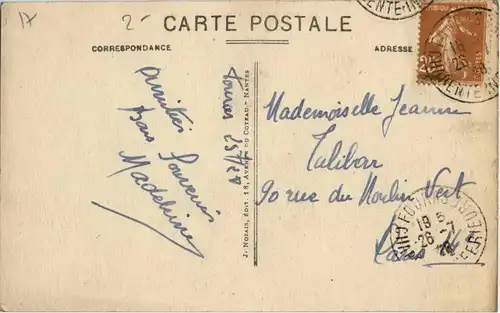 17
2-
CARTE POSTALE
CORRESPONDANCE
ADRESSE
Amitiés
Bons Souvenirs
Madeleine
J. Nozais, Édit. 18, Avenue du Coteau. - Nantes
Mademoiselle Jeanne
Talibar
90 rue du Moulin Vert
Paris
18
26